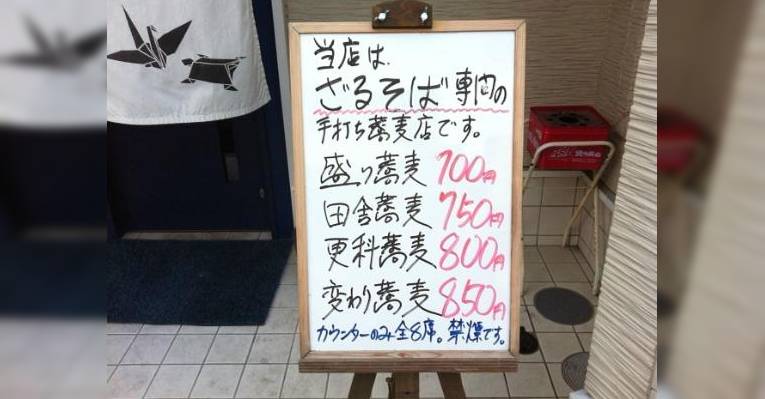 当店は、
ざるそば専门の
手打ち蕎麦店です。
盛り蕎麦 700円
田舎蕎麦 750円
更科蕎麦 800円
変わり蕎麦 850円
カウンターのみ全8席。禁煙です。